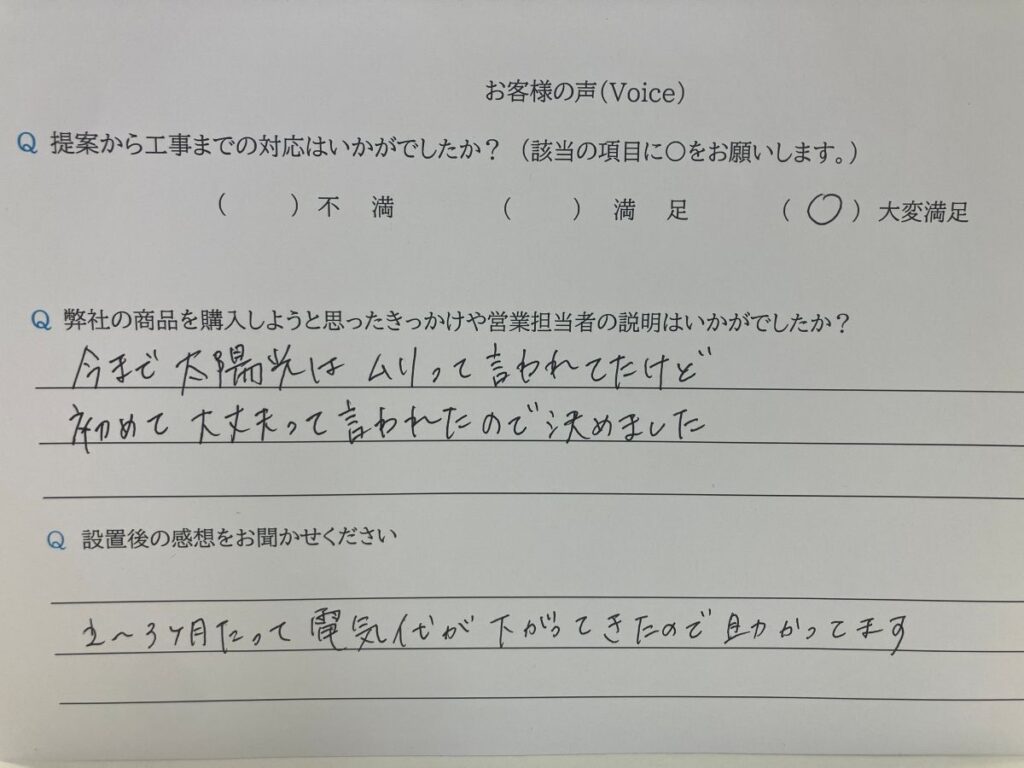 お客様の声(Voice)
Q 提案から工事までの対応はいかがでしたか？（該当の項目に〇をお願いします。）
（　　）不　満　　（　　）満　足　　（〇）大変満足
Q 弊社の商品を購入しようと思ったきっかけや営業担当者の説明はいかがでしたか？
今まで太陽光はムリって言われてたけど
初めて大丈夫って言われたので決めました
Q 設置後の感想をお聞かせください
2〜3ヶ月たって電気代が下がってきたので助かってます